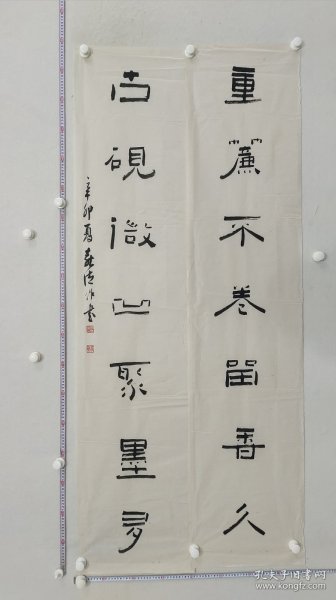 重簾不卷留香久
古硯微凹聚墨多
辛卯夏
孔夫子旧书网